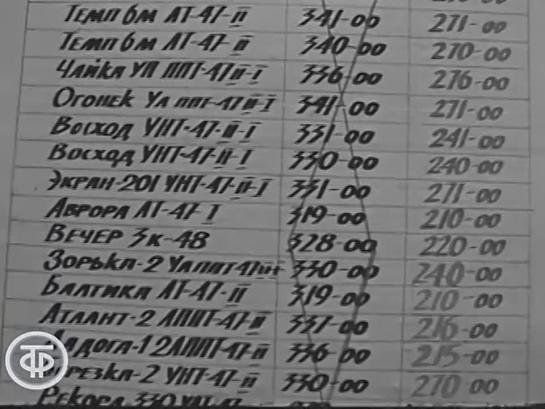 Темп 6м АТ-47-II 341-00 271-00
Темп 6м АТ-47-II 340-00 270-00
Чайка УП ППТ-47-II-I 336-00 276-00
Огонек Ул ппт-47-II-I 341-00 271-00
Восход УНТ-47-II-I 331-00 241-00
Восход УНТ-47-II-I 330-00 240-00
Экран-201 УНТ-47-II-I 331-00 271-00
Аврора АТ-47-I 319-00 210-00
Вечер 3к-48 328-00 220-00
Зорька-2 330-00 240-00
Балтика АТ-47-II 319-00 210-00
Атлант-2 АППТ-47-II 337-00 216-00
Ладога-1 2АППТ-47-II 336-00 215-00
Березка-2 УНТ-47-II 330-00 270-00
Рекорд 330